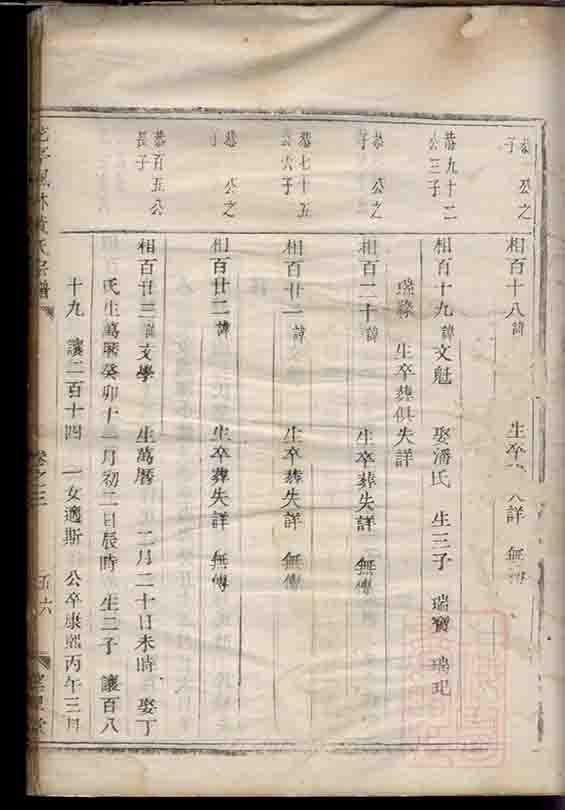 恭 公之
子
相百十八諱 生卒 詳 無傳
恭九十二
公三子
相百十九諱文魁 娶潘氏 生三子 瑞寶 瑞玘
瑞祿 生卒葬俱失詳
恭 公之
子
相百二十諱 生卒葬失詳 無傳
恭七十五
公六子
相百廿一諱 生卒葬失詳 無傳
恭 公之
子
相百廿二諱 生卒葬失詳 無傳
恭百五公
長子
相百廿三諱文學 生萬曆 二月二十日未時 娶丁
氏生萬曆癸卯十一月初二日辰時 生二子 讓百八
十九 讓二百十四 一女適斯 公卒康熙丙午三月
林黃氏宗譜 卷之三 五六